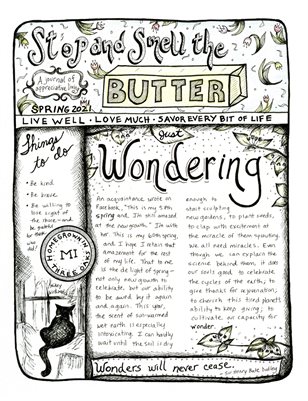 Stop and Smell the
BUTTER
A journal of
appreciative
SPRING 2021
LIVE WELL · LOVE MUCH · SAVOR EVERY BIT OF LIFE
Things
to do
· Be kind.
· Be brave.
· Be willing to
lose sight of
the shore - and
be patient
for those
who
HOMEGROWN
MI
THREADS
Just
Wondering
An acquaintance wrote on
Facebook, "This is my 58th
spring and I'm still amazed
at the new growth." I'm with
her. This is my 60th spring,
and I hope I retain that
amazement for the rest
of my life. That to me
is the gift of spring—
not only new growth to
celebrate, but our ability
to be awed by it again
and again. This year,
the scent of sun-warmed
wet earth is especially
intoxicating. I can hardly
wait until the soil is dry
enough to
start sculpting
new gardens, to plant seeds,
to clap with excitement at
the miracle of them sprouting.
We all need miracles. Even
though we can explain the
science behind them, it does
our souls good to celebrate
the cycles of the earth; to
give thanks for rejuvenation;
to cherish this tired planet's
ability to keep giving; to
cultivate our capacity for
wonder.
Wonders will never cease.
Sir Henry Bate Dudley